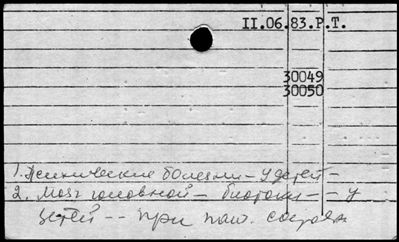 II.06.83.P.T.
30049
30050
1. Психические болезни - у детей -
2. Мозг головной - биотоки - - у
детей - - при пат. состоян